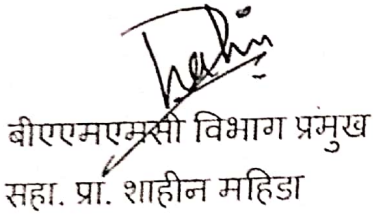 बीएएमएमसी विभाग प्रमुख
सहा. प्रा. शाहीन महिडा